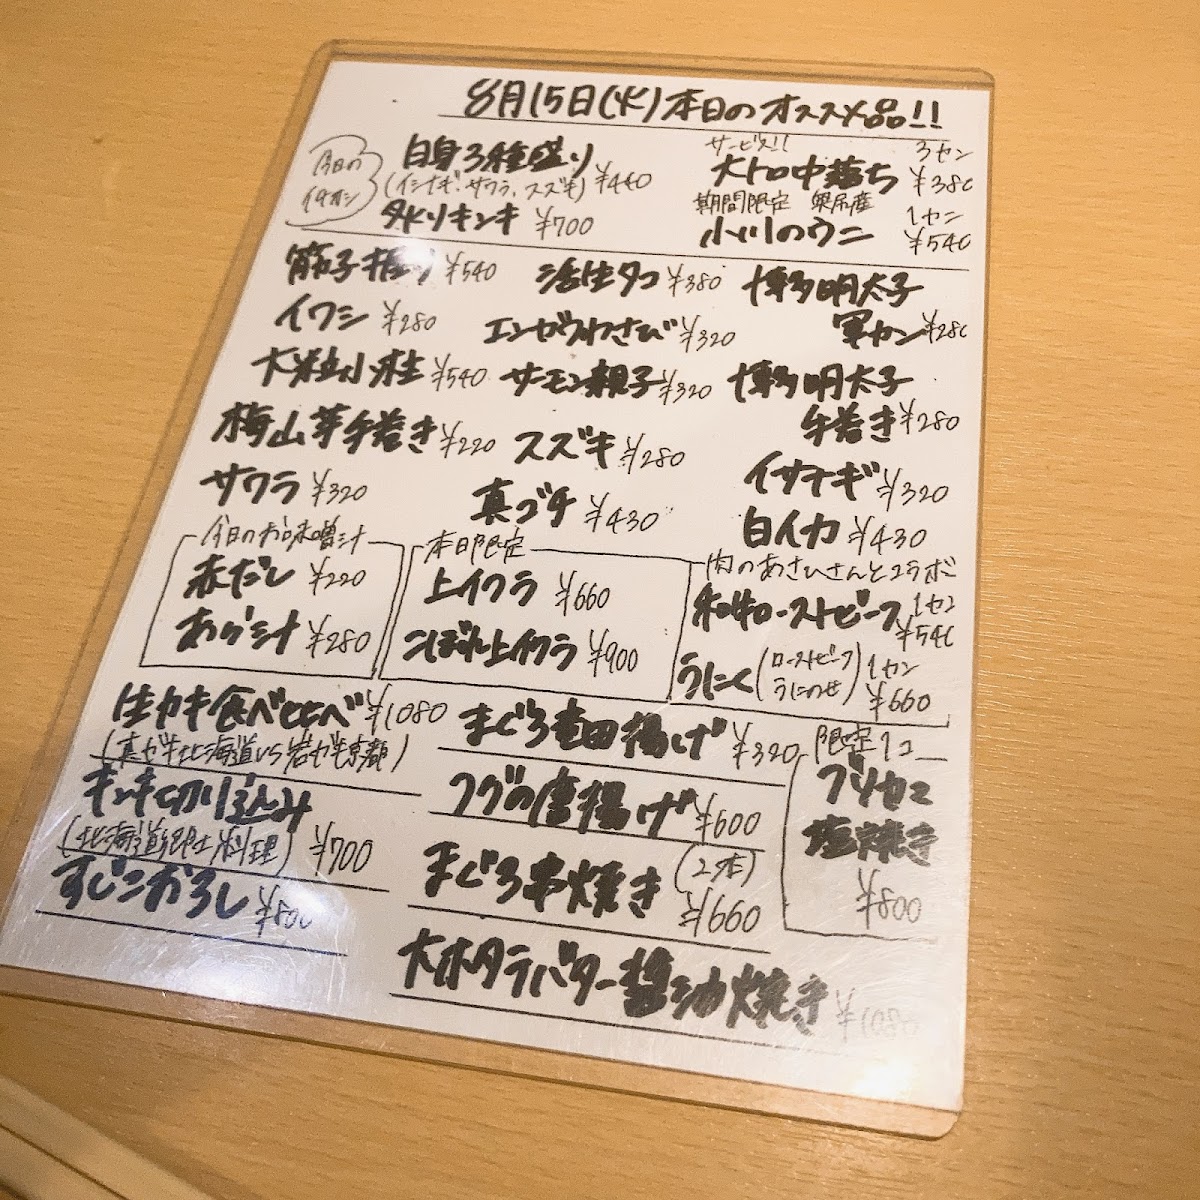 8月15日(火)本日のオススメ品!!
今日の
イチオシ
白身3種盛り ¥440
(イシナギ、サワラ、スズキ)
炙りキンキ ¥700
サービス!!
大トロ中落ち 3カン ¥380
期間限定 奥尻産
小川のウニ 1カン ¥540
筋子握り ¥540 活生タコ ¥380 博多明太子
軍カン ¥280
イワシ ¥280 エンガワわさび ¥320
大粒小柱 ¥540 サーモン親子 ¥320 博多明太子
手巻き ¥280
梅山芋手巻き ¥220 スズキ ¥280
イサナギ ¥320
サワラ ¥320 真ゴチ ¥430
白イカ ¥430
今日のお味噌汁
赤だし ¥220
あら汁 ¥280
本日限定
上イクラ ¥660
こぼれ上イクラ ¥900
肉のあさひさんとコラボ
和牛ローストビーフ 1カン ¥540
うにく(ローストビーフうにのせ) 1カン ¥660
生カキ食べ比べ ¥1080
(真ガキ北海道vs岩ガキ京都)
キンキ切り込み
(北海道郷土料理) ¥700
すじこおろし ¥800
まぐろ竜田揚げ ¥320
フグの唐揚げ ¥600
まぐろ串焼き (2本) ¥660
限定1コ
ブリカマ
塩焼き
¥800
大ホタテバター醤油焼き ¥1080